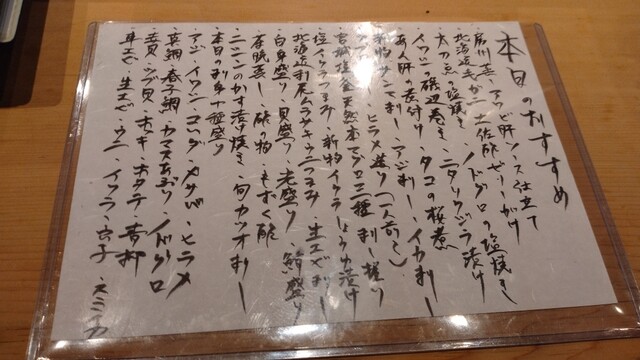 本日のおすすめ
房州蒸しアワビ肝ソース仕立て
北海道毛がに土佐酢ゼリーがけ
太刀魚の塩焼き・ノドグロの塩焼き
イワシの磯辺巻き・ニタリクジラ漬け
あん肝の煮付け・タコの桜煮
新物サンマ刺し・アジ刺し・イカ刺し
ヒラメ造り(一人前〜)
宮城塩釜天然本マグロ三種刺し・握り
塩イクラつまみ・新物イクラしょうゆ漬け
北海道利尻ムラサキウニつまみ・生エビ刺し
白身盛り・貝盛り・光盛り・鮪盛り
茶碗蒸し・酢の物・もずく酢
ニシンのかす漬け焼き・旬カツオ刺し
本日の刺身十種盛り
アジ・イワシ・コハダ・カサゴ・ヒラメ
真鯛・春子鯛・カマスあぶり・ノドグロ
赤貝・ツブ貝・ホッキ・ホタテ・青柳
車エビ・生エビ・ウニ・イクラ・穴子・スミイカ